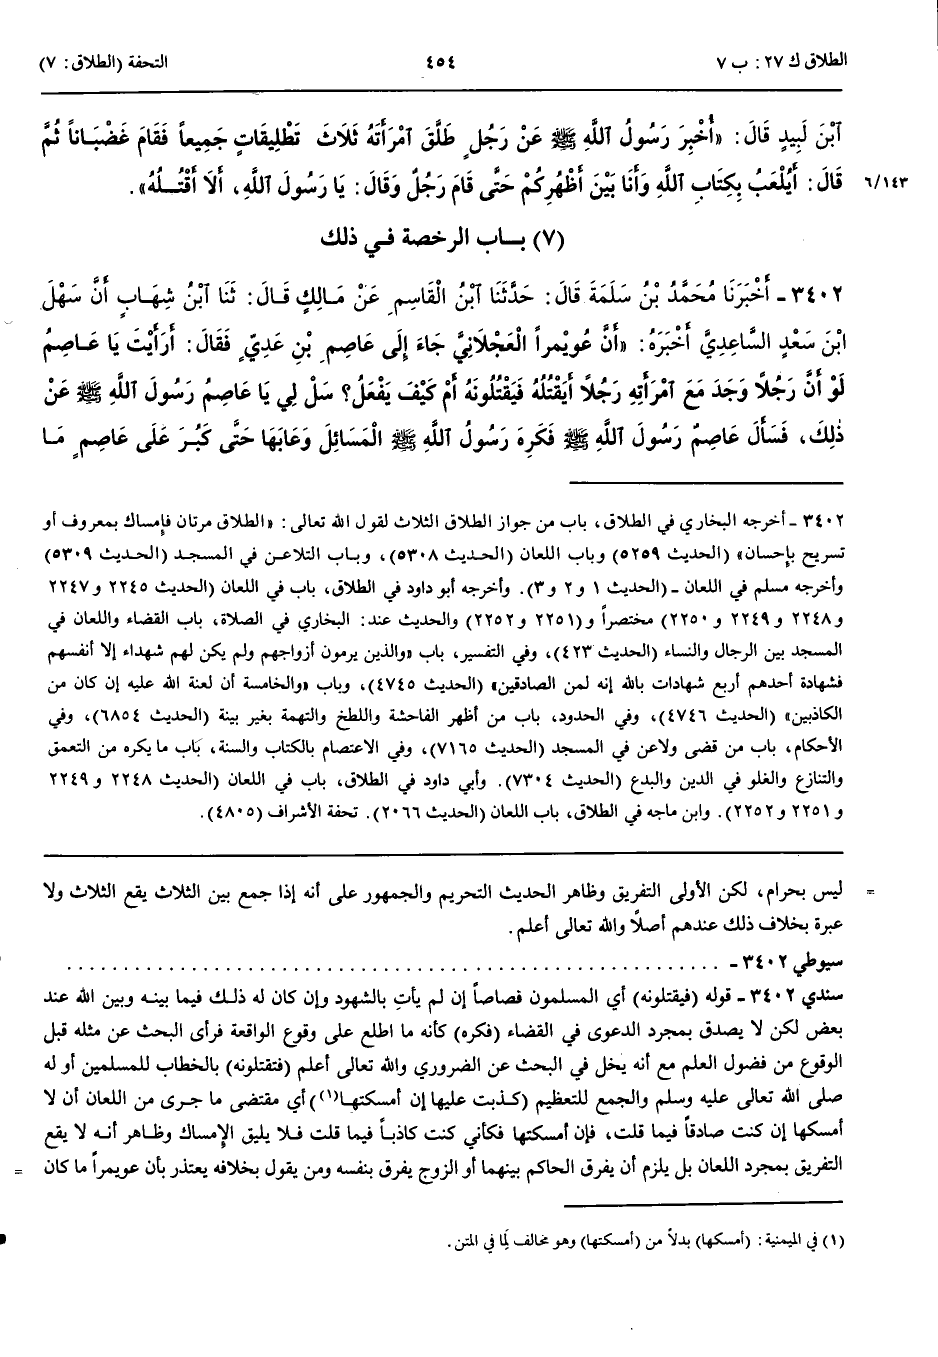 الطلاق ك ٢٧: ب ٧
٤٥٤
التحفة (الطلاق: ٧)
ٱبْنَ لَبِيدٍ قَالَ: «أُخْبِرَ رَسُولُ ٱللَّهِ ﷺ عَنْ رَجُلٍ طَلَّقَ ٱمْرَأَتَهُ ثَلَاثَ تَطْلِيقَاتٍ جَمِيعاً فَقَامَ غَضْبَاناً ثُمَّ
قَالَ: أَيُلْعَبُ بِكِتَابِ ٱللَّهِ وَأَنَا بَيْنَ أَظْهُرِكُمْ حَتَّى قَامَ رَجُلٌ وَقَالَ: يَا رَسُولَ ٱللَّهِ، أَلَا أَقْتُـلُهُ».
٦/١٤٣
(٧) بـاب الرخصة فـي ذلك
٣٤٠٢ - أَخْبَرَنَا مُحَمَّدُ بْنُ سَلَمَةَ قَالَ: حَدَّثَنَا ٱبْنُ الْقَاسِمِ عَنْ مَالِكٍ قَالَ: ثَنَا ٱبْنُ شِهَابٍ أَنَّ سَهْلَ
ابْنَ سَعْدٍ السَّاعِدِيَّ أَخْبَرَهُ: «أَنَّ عُوَيْمِراً الْعَجْلَانِيَّ جَاءَ إِلَى عَاصِمِ بْنِ عَدِيٍّ فَقَالَ: أَرَأَيْتَ يَا عَاصِمُ
لَوْ أَنَّ رَجُلاً وَجَدَ مَعَ ٱمْرَأَتِهِ رَجُلاً أَيَقْتُلُهُ فَيَقْتُلُونَهُ أَمْ كَيْفَ يَفْعَلُ؟ سَلْ لِي يَا عَاصِمُ رَسُولَ ٱللَّهِ ﷺ عَنْ
ذٰلِكَ، فَسَأَلَ عَاصِمٌ رَسُولَ ٱللَّهِ ﷺ فَكَرِهَ رَسُولُ ٱللَّهِ ﷺ الْمَسَائِلَ وَعَابَهَا حَتَّى كَبُرَ عَلَى عَاصِمٍ مَا
٣٤٠٢ - أخرجه البخاري في الطلاق، باب من جواز الطلاق الثلاث لقول الله تعالى: «الطلاق مرتان فإمساك بمعروف أو
تسريح بإحسان» (الحديث ٥٢٥٩) وباب اللعان (الحديث ٥٣٠٨)، وبـاب التلاعـن في المسجد (الحديث ٥٣٠٩)
وأخرجه مسلم في اللعان - (الحديث ١ و ٢ و ٣). وأخرجه أبو داود في الطلاق، باب في اللعان (الحديث ٢٢٤٥ و ٢٢٤٧
و ٢٢٤٨ و ٢٢٤٩ و ٢٢٥٠) مختصراً و (٢٢٥١ و ٢٢٥٢) والحديث عند: البخاري في الصلاة، باب القضاء واللعان في
المسجد بين الرجال والنساء (الحديث ٤٢٣)، وفي التفسير، باب «والذين يرمون أزواجهم ولم يكن لهم شهداء إلا أنفسهم
فشهادة أحدهم أربع شهادات بالله إنه لمن الصادقين» (الحديث ٤٧٤٥)، وباب «والخامسة أن لعنة الله عليه إن كان من
الكاذبين» (الحديث ٤٧٤٦)، وفي الحدود، باب من أظهر الفاحشة واللطخ والتهمة بغير بينة (الحديث ٦٨٥٤)، وفي
الأحكام، باب من قضى ولاعن في المسجد (الحديث ٧١٦٥)، وفي الاعتصام بالكتاب والسنة، باب ما يكره من التعمق
والتنازع والغلو في الدين والبدع (الحديث ٧٣٠٤). وأبي داود في الطلاق، باب في اللعان (الحديث ٢٢٤٨ و ٢٢٤٩
و ٢٢٥١ و ٢٢٥٢). وابن ماجه في الطلاق، باب اللعان (الحديث ٢٠٦٦). تحفة الأشراف (٤٨٠٥).
= ليس بحرام، لكن الأولى التفريق وظاهر الحديث التحريم والجمهور على أنه إذا جمع بين الثلاث يقع الثلاث ولا
عبرة بخلاف ذلك عندهم أصلاً والله تعالى أعلم.
سيوطي ٣٤٠٢ - ......................................................
سندي ٣٤٠٢ - قوله (فيقتلونه) أي المسلمون قصاصاً إن لم يأتِ بالشهود وإن كان له ذلـك فيما بينـه وبين الله عند
بعض لكن لا يصدق بمجرد الدعوى في القضاء (فكره) كأنه ما اطلع على وقوع الواقعة فرأى البحث عن مثله قبل
الوقوع من فضول العلم مع أنه يخل في البحث عن الضروري والله تعالى أعلم (فتقتلونه) بالخطاب للمسلمين أو له
صلى الله تعالى عليه وسلم والجمع للتعظيم (كـذبت عليها إن أمسكتهـا(١)) أي مقتضى ما جـرى من اللعان أن لا
أمسكها إن كنت صادقاً فيما قلت، فإن أمسكتها فكأني كنت كاذبـاً فيما قلت فـلا يليق الإمساك وظـاهر أنـه لا يقع
التفريق بمجرد اللعان بل يلزم أن يفرق الحاكم بينهما أو الزوج يفرق بنفسه ومن يقول بخلافه يعتذر بأن عويمراً ما كان =
(١) في الميمنية: (أمسكها) بدلاً من (أمسكتها) وهو مخالف لِمَا في المتن.